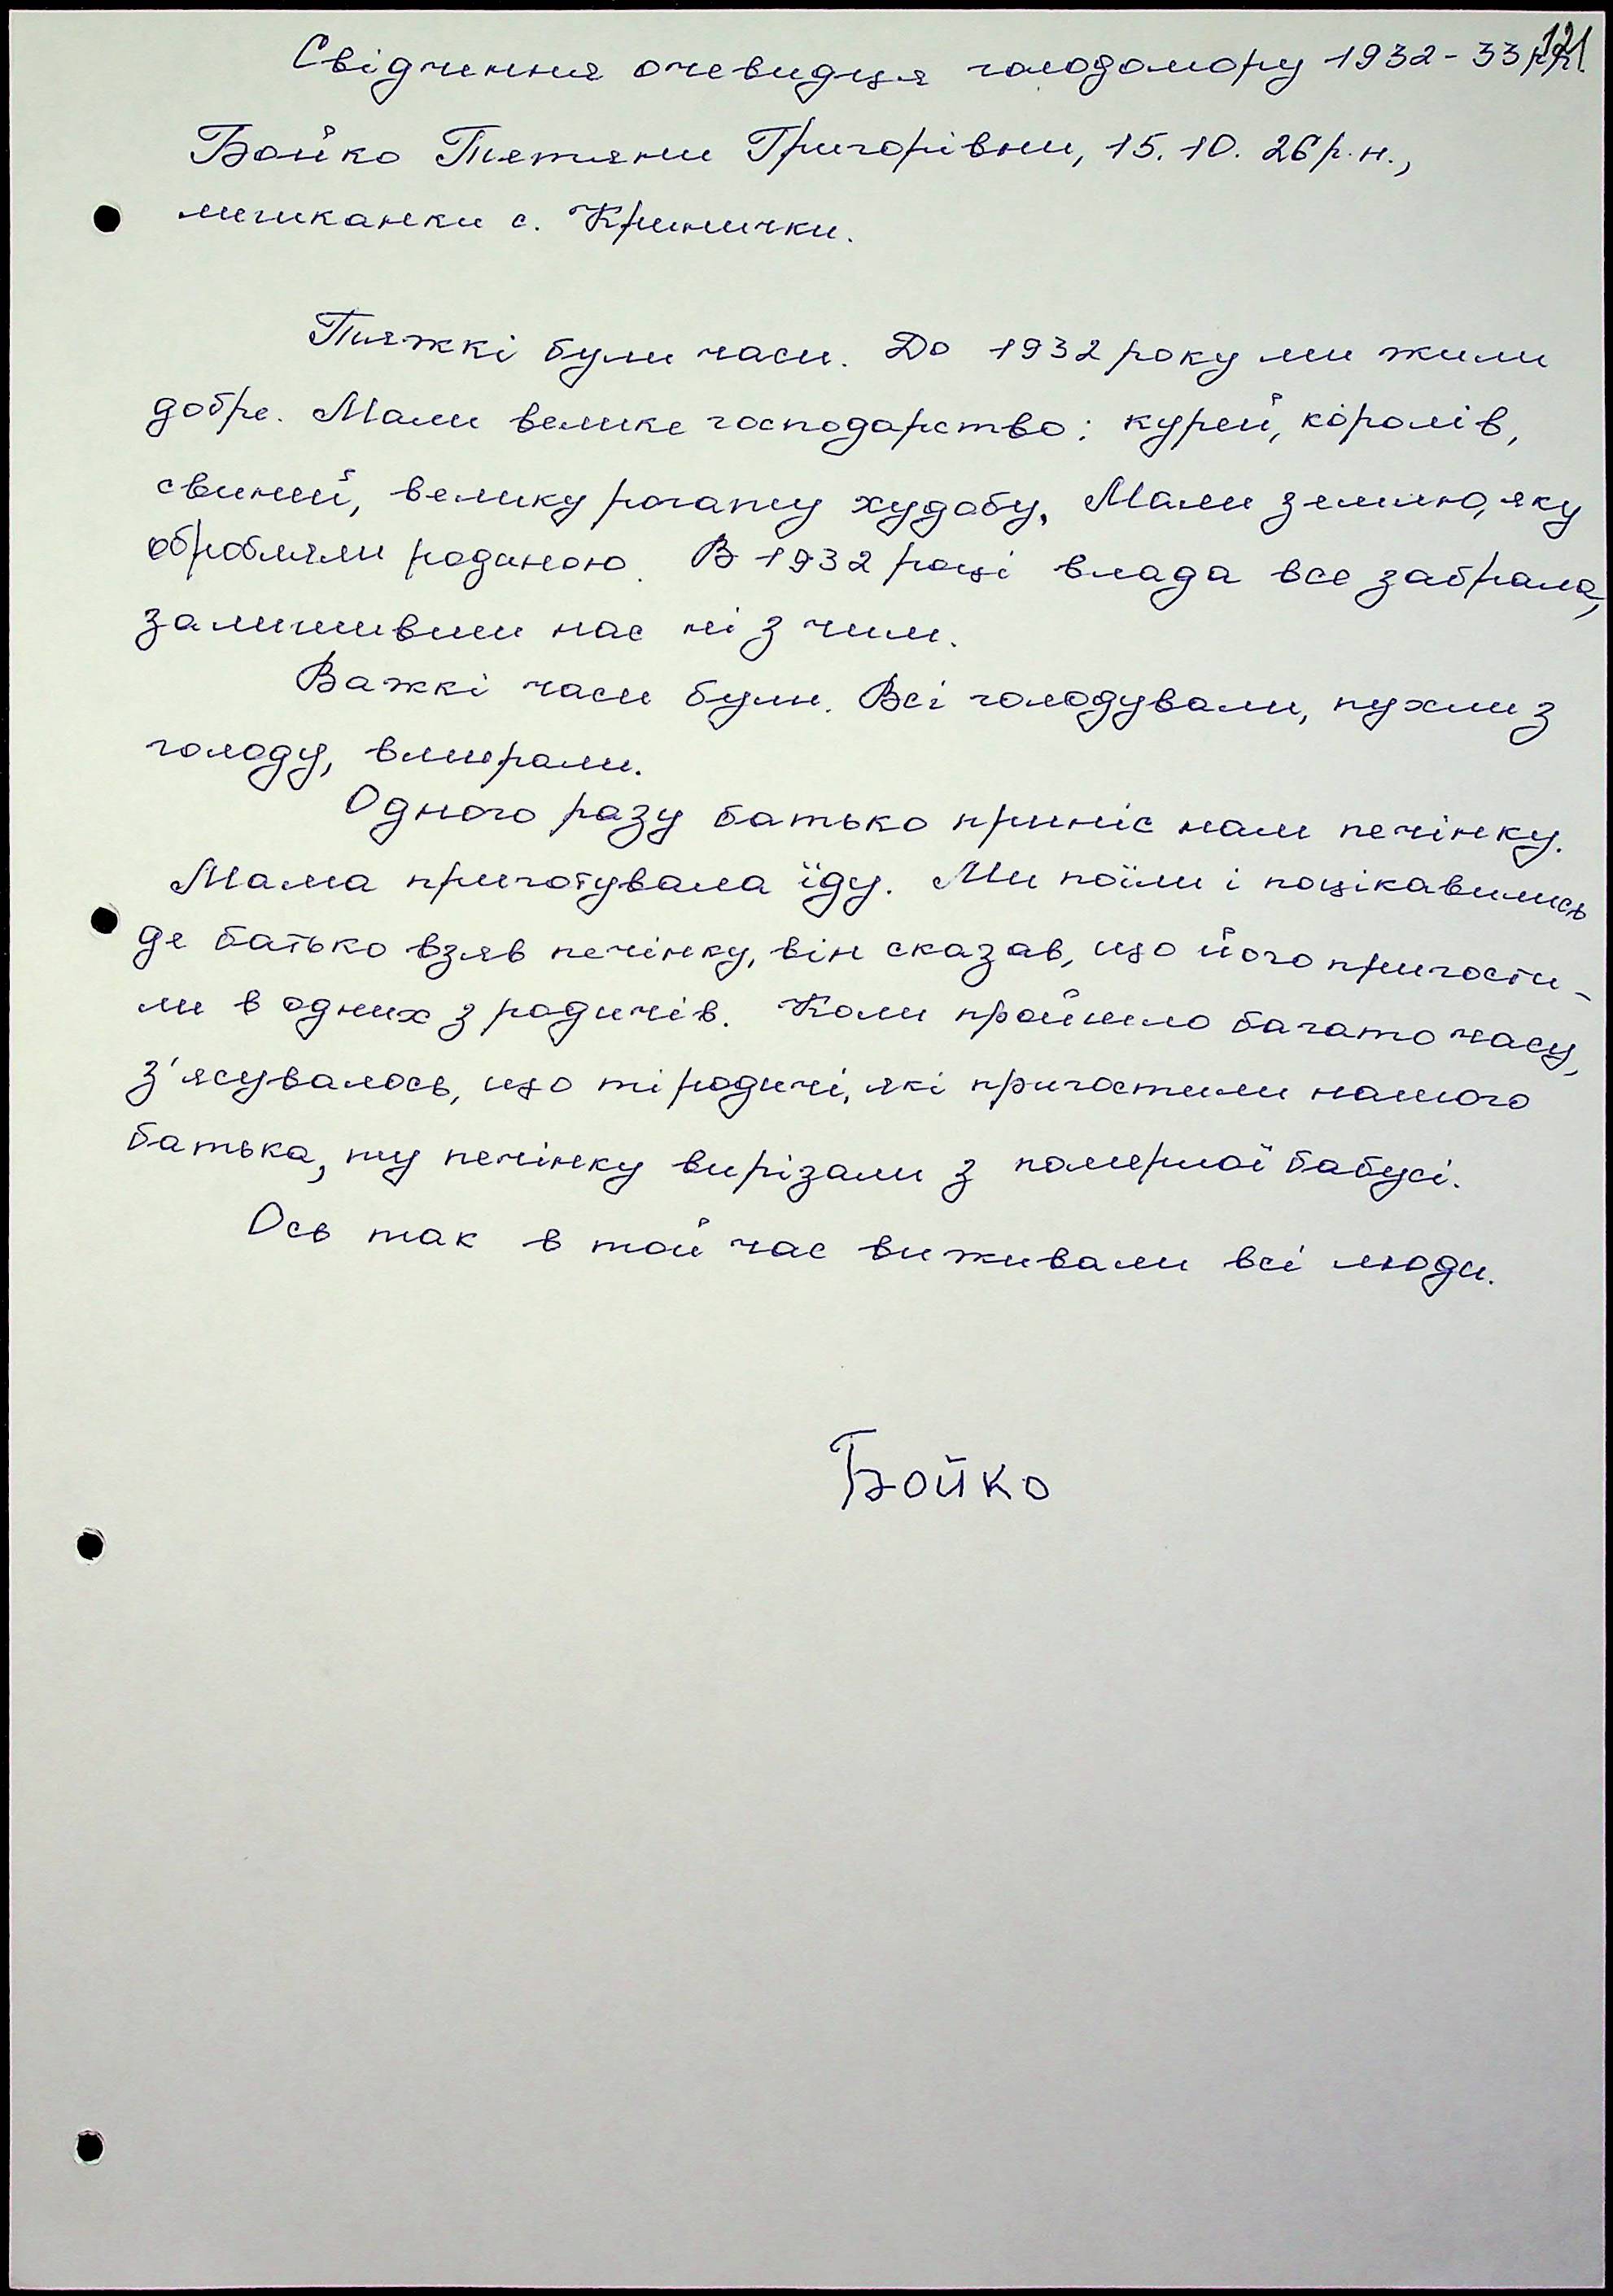 121
Свідчення очевидця голодомору 1932-33 рр.
Бойко Тетяни Григорівни, 15.10.26 р.н.,
мешканки с. Кринички.
Тяжкі були часи. До 1932 року ми жили
добре. Мали велике господарство: курей, королів,
свиней, велику рогату худобу. Мали землю, яку
обробляли родиною. В 1932 році влада все забрала,
залишивши нас ні з чим.
Важкі часи були. Всі голодували, пухли з
голоду, вмирали.
Одного разу батько приніс нам печінку.
Мама приготувала їду. Ми поїли і поцікавились
де батько взяв печінку, він сказав, що його пригости-
ли в одних з родичів. Коли пройшло багато часу,
з'ясувалось, що ті родичі, які пригостили нашого
батька, ту печінку вирізали з померлої бабусі.
Ось так в той час виживали всі люди.
Бойко